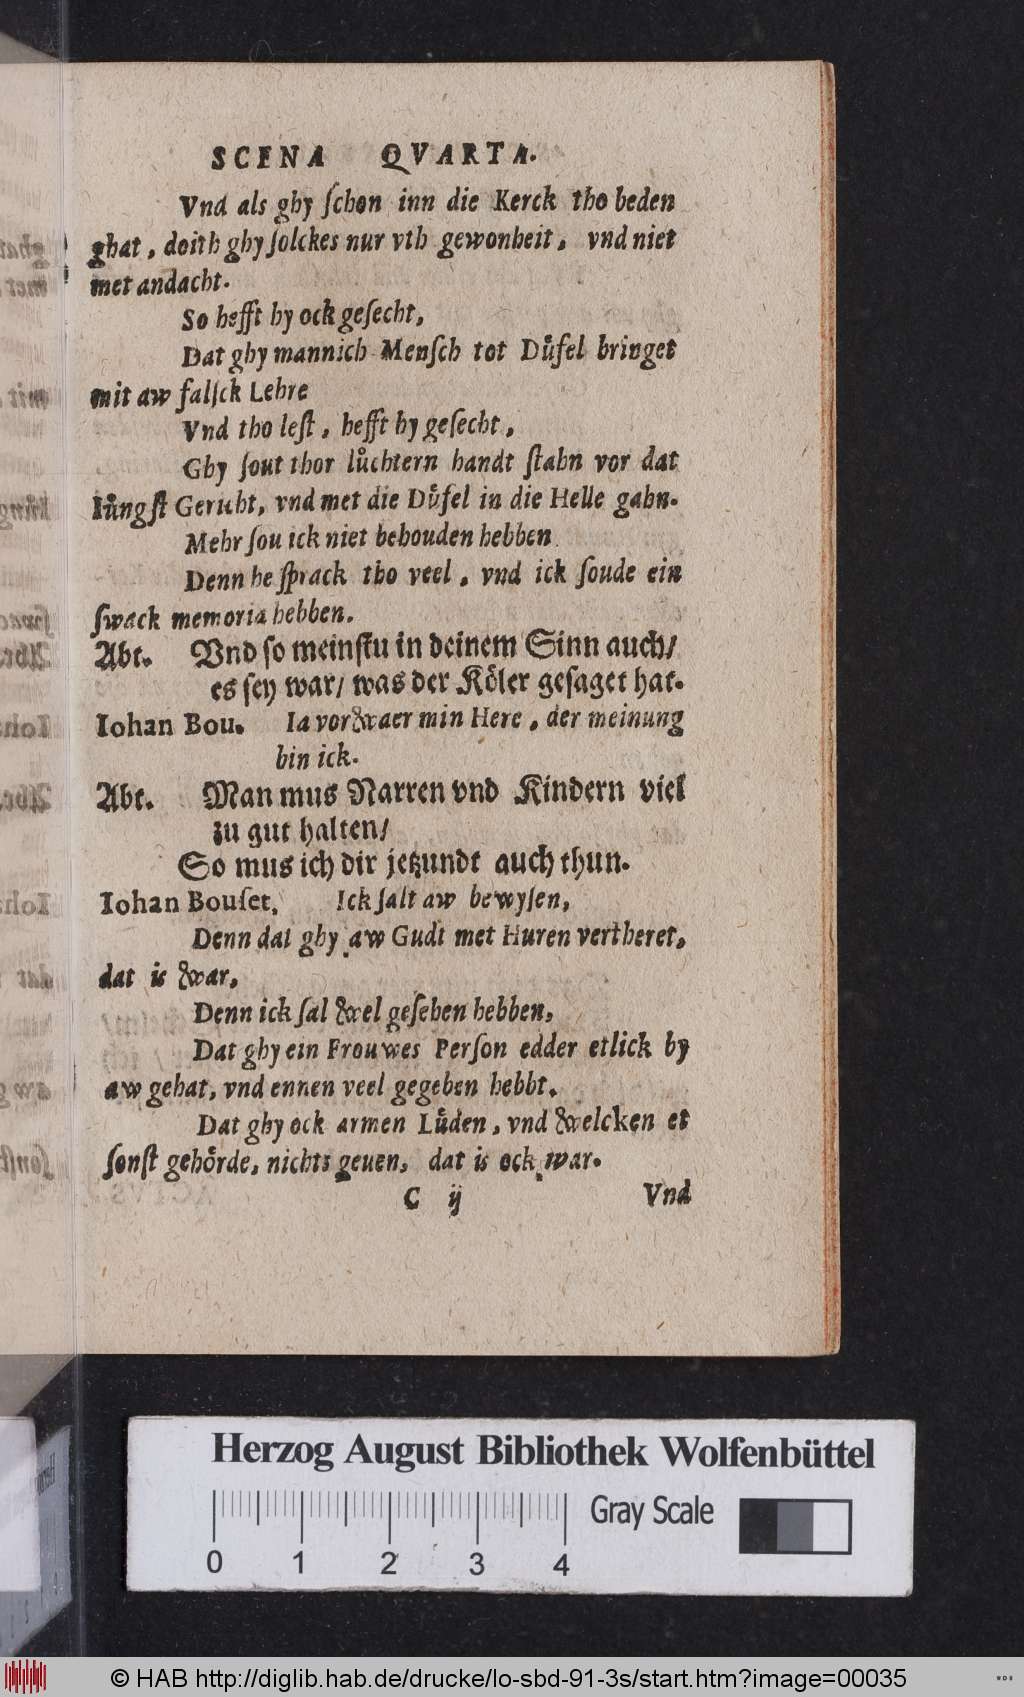 SCENA QVARTA.
Vnd als ghy ſchon inn die Kerck tho beden
ghat, doith ghy ſolckes nur vth gewonheit, vnd niet
met andacht.
So hefft hy ock geſecht,
Dat ghy mannich Menſch tot Duͤfel bringet
mit aw falſck Lehre
Vnd tho leſt, hefft hy geſecht,
Ghy ſout thor luͤchtern handt ſtahn vor dat
Iuͤngſt Gericht, vnd met die Duͤfel in die Helle gahn.
Mehr ſou ick niet behouden hebben
Denn he ſprack tho veel, vnd ick ſoude ein
ſwack memoria hebben.
Abt. Vnd ſo meinſtu in deinem Sinn auch/
es ſey war/ was der Koͤler geſaget hat.
Iohan Bou. Ia vorwaer min Here, der meinung
bin ick.
Abt. Man mus Narren vnd Kindern viel
zu gut halten/
So mus ich dir jetzundt auch thun.
Iohan Bouſet. Ick ſalt aw bewyſen,
Denn dat ghy aw Gudt met Huren vertheret,
dat is war,
Denn ick ſal wel geſehen hebben,
Dat ghy ein Frouwes Perſon edder etlick by
aw gehat, vnd ennen veel gegeben hebbt.
Dat ghy ock armen Luͤden, vnd welcken et
ſonſt gehoͤrde, nichts geuen, dat is ock war.
C ij Vnd
Herzog August Bibliothek Wolfenbüttel
Gray Scale
0 1 2 3 4
© HAB http://diglib.hab.de/drucke/lo-sbd-91-3s/start.htm?image=00035